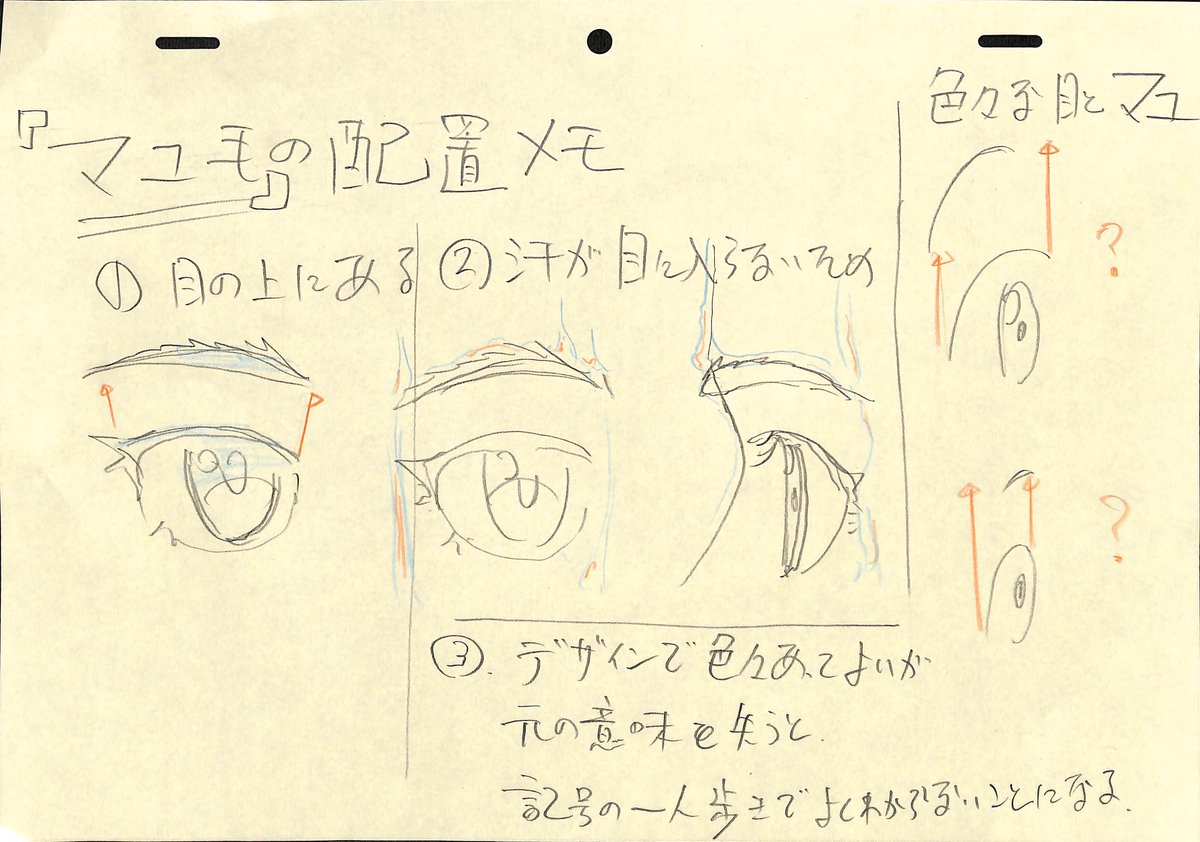 『マユ毛』の配置メモ
① 目の上にある
② 汗が目に入らないため
③. デザインで色々あってよいが
元の意味を失うと.
記号の一人歩きでよくわからないことになる.
色々な目とマユ
?
?